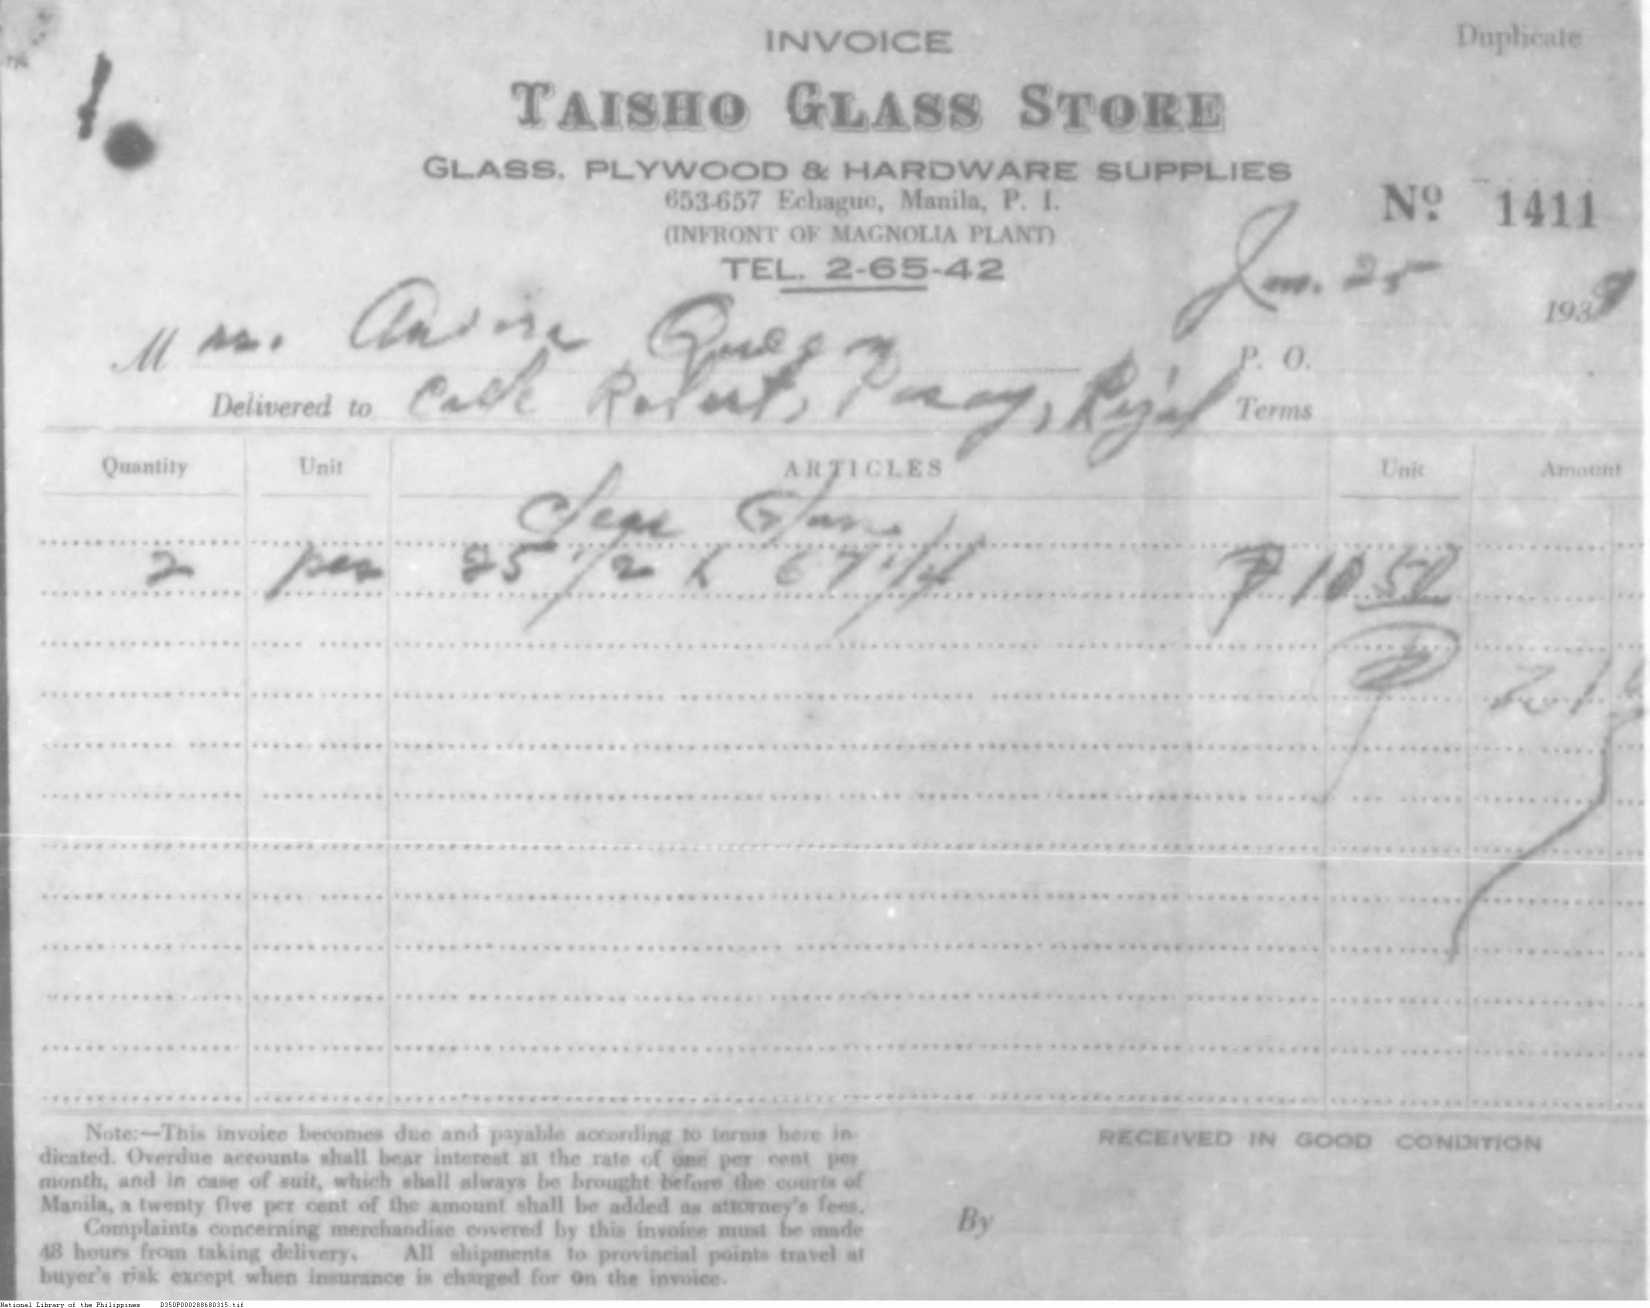 INVOICE
Duplicate
TAISHO GLASS STORE
GLASS, PLYWOOD & HARDWARE SUPPLIES
653-657 Echague, Manila, P. I.
(INFRONT OF MAGNOLIA PLANT)
TEL. 2-65-42
Nº 1411
Jan. 25 1939
M
Delivered to Calle Robert, Pasay, Rizal
P. O.
Terms
Quantity Unit ARTICLES Unit Amount
Clear Glass
2 pcs 25 1/2 x 67 1/4 ₱ 10.50
Note:—This invoice becomes due and payable according to terms here in-
dicated. Overdue accounts shall bear interest at the rate of one per cent per
month, and in case of suit, which shall always be brought before the courts of
Manila, a twenty five per cent of the amount shall be added as attorney's fees.
Complaints concerning merchandise covered by this invoice must be made
48 hours from taking delivery. All shipments to provincial points travel at
buyer's risk except when insurance is charged for on the invoice.
RECEIVED IN GOOD CONDITION
By
National Library of the Philippines D350P000288680315.tif